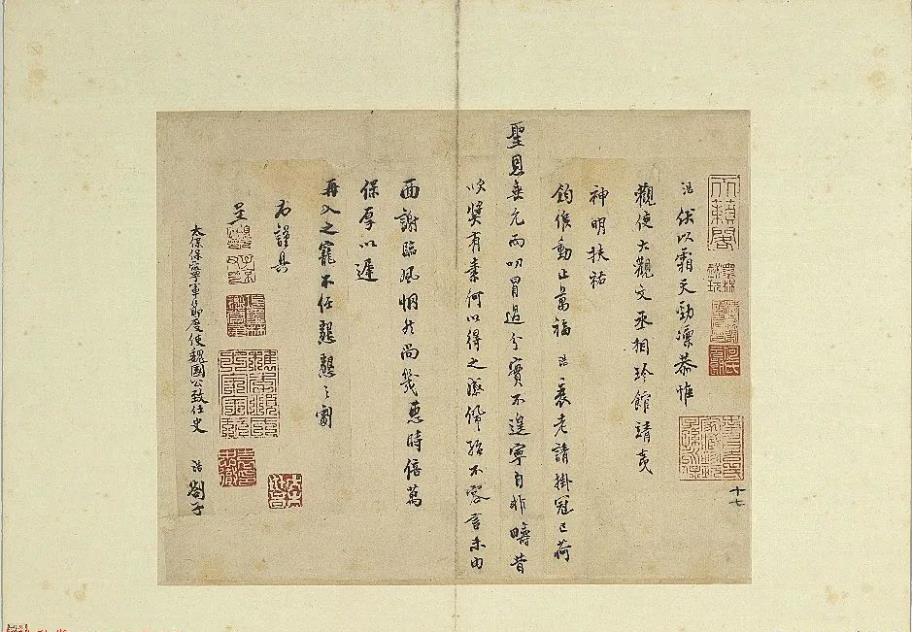 浩伏以霜天勁凜恭惟
觀使大觀文丞相珍館靖夷
神明扶祐
鈞候動止萬福浩衰老請掛冠已荷
聖恩垂允而叨冒過分實不遑寧自非疇昔
吹獎有素何以得之感佩殆不容言未由
面謝臨風惘然尚幾惠時倍萬
保厚以遲
再入之寵不任懇懇之禱
右謹具
呈
太保保寧軍節度使魏國公致仕史浩劄子
十七
天籟閣